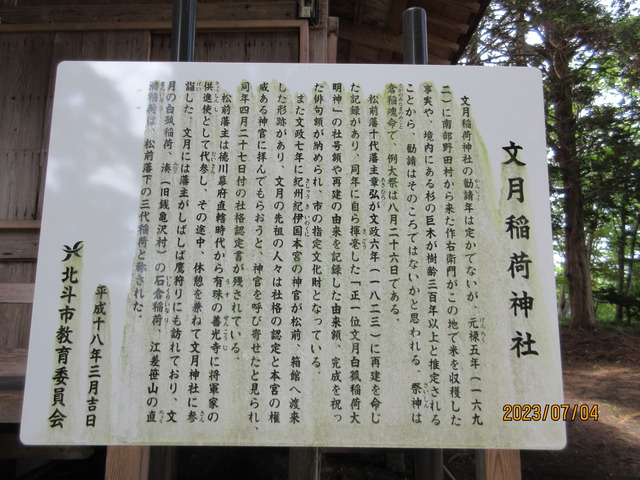 文月稲荷神社
文月稲荷神社の勧請年は定かでないが、元禄五年(一六九
二)に南部野田村から来た作右衛門がこの地で米を収穫した
事実や、境内にある杉の巨木が樹齢三百年以上と推定される
ことから、勧請はそのころではないかと思われる。祭神は
倉稲魂命で、例大祭は八月二十六日である。
松前藩十代藩主章弘が文政六年(一八二三)に再建を命じ
た記録があり、同年に自ら揮毫した「正一位文月白狐稲荷大
明神」の社号額や再建の由来を記録した由来額、完成を祝っ
た俳句額が納められ、市の指定文化財となっている。
また文政七年に紀州紀伊国本宮の神官が松前、箱館へ渡来
した形跡があり、文月の先祖の人々は社格の認定と本宮の権
威ある神官に拝んでもらおうと、神官を呼び寄せたと見られ、
同年四月二十七日付の社格認定書が残されている。
松前藩主は徳川幕府直轄時代から有珠の善光寺に将軍家の
供進使として代参し、その途中、休憩を兼ねて文月神社に参
詣した。文月には藩主がしばしば鷹狩りにも訪れており、文
月の白狐稲荷、湊(旧銭亀沢村)の石倉稲荷、江差笹山の直
満稲荷は、松前藩下の三代稲荷と称された。
平成十八年三月吉日
北斗市教育委員会
2023/07/04